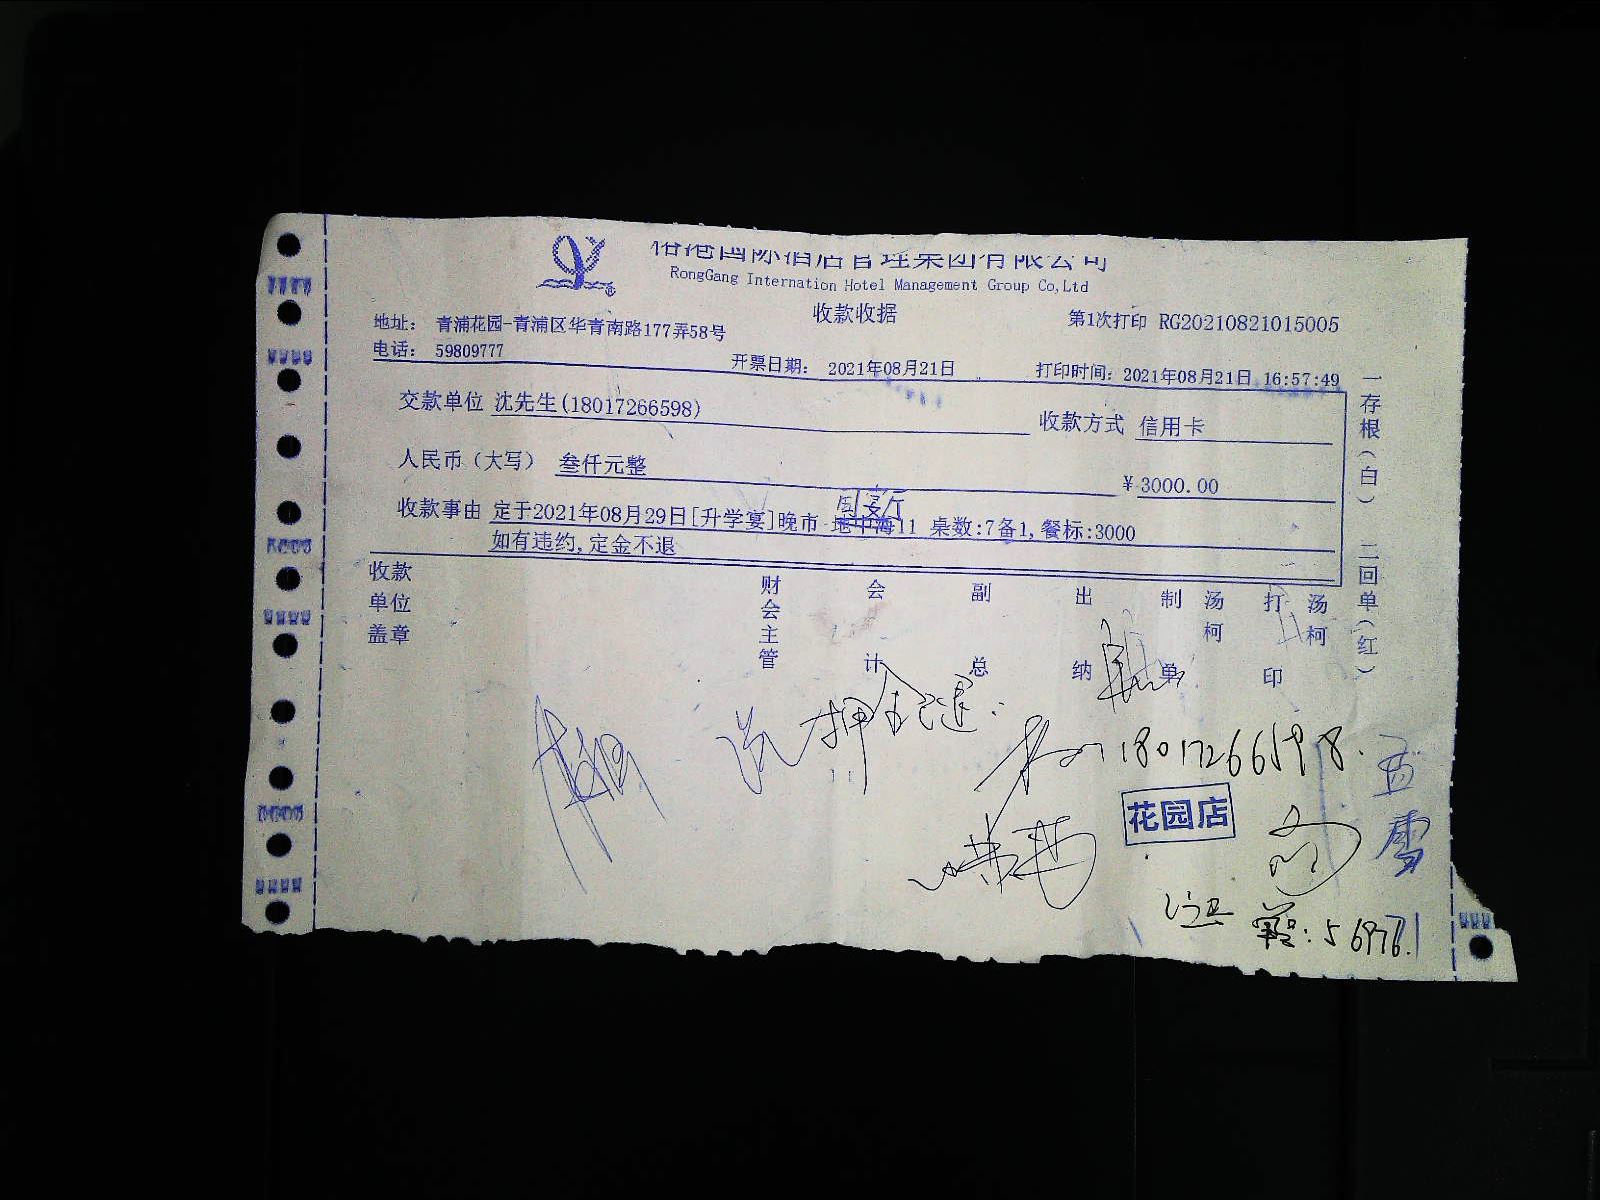 国际酒店管理集团有限公司
RongGang Internation Hotel Management Group Co,Ltd
收款收据
第1次打印 RG20210821015005
地址： 青浦花园-青浦区华青南路177弄58号
电话： 59809777
开票日期： 2021年08月21日
打印时间：2021年08月21日 16:57:49
交款单位 沈先生(18017266598)
收款方式 信用卡
人民币（大写） 叁仟元整
¥ 3000.00
国宴厅
收款事由 定于2021年08月29日[升学宴]晚市 地中海11 桌数:7备1,餐标:3000
如有违约,定金不退
收款单位盖章
财会主管
会计
副总
出纳
制单
汤柯
打印
汤柯
一存根（白） 二回单（红）
押金已退
18017266598.
花园店
: 56976.